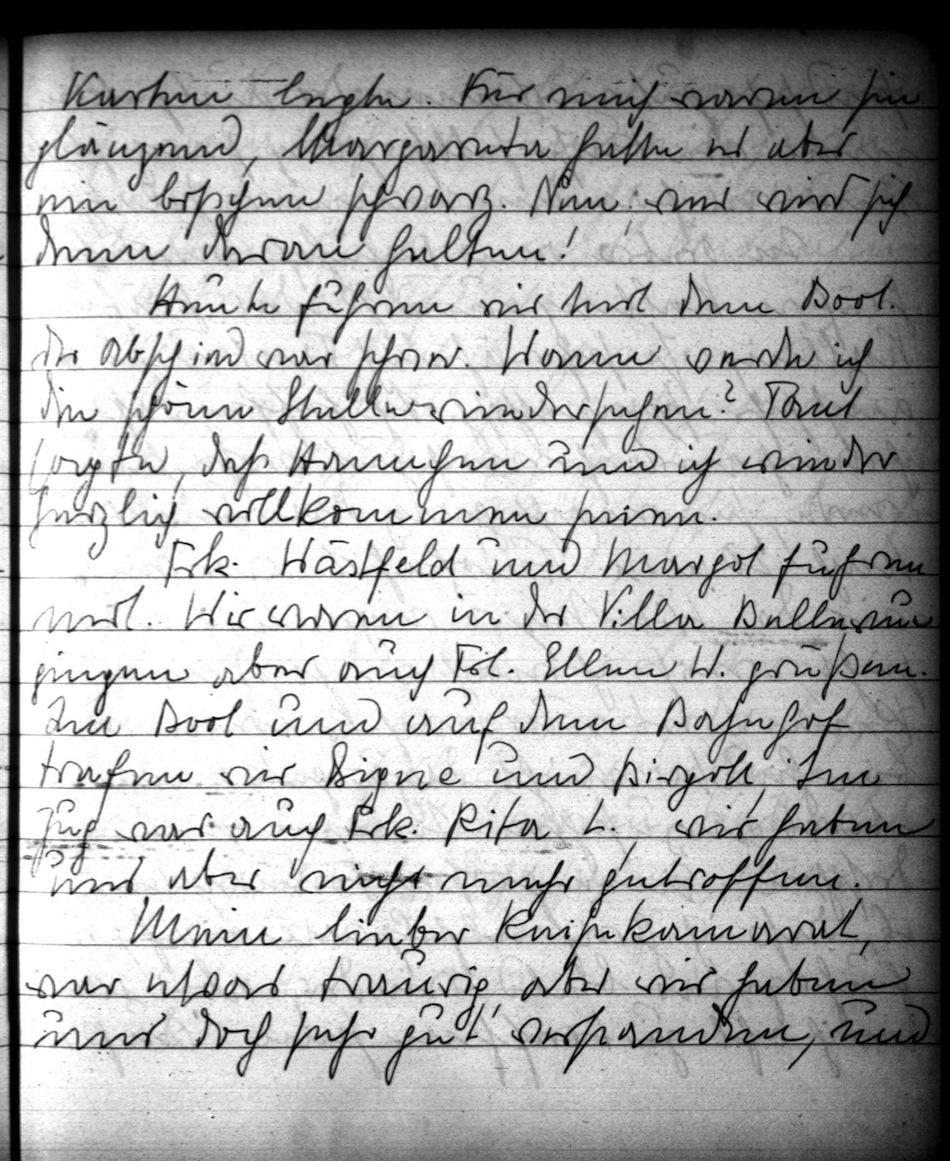 Karten legte. Für mich waren sie
glänzend, Margareta hatte es aber
ein bischen schwarz. Nun, wer wird sich
denn daran halten!
Heute fuhren wir mit dem Boot.
der Abschied war schwer. Wann werde ich
die schöne Stelle wiedersehen? Tant
sagte, daß Hannchen und ich wieder
herzlich willkommen seien.
Frk. Wästfeld und Margot fuhren
mit. Wir waren in der Villa
gingen aber auch Frl. Ellen W. grüßen.
Im Boot und auf dem Bahnhof
trafen wir Signe und Birgitt, Im
Zug war auch Frk. Rita L., wir haben
uns aber nicht mehr getroffen.
Mein lieber Reisekamerat,
war etwas traurig, aber wir haben
uns doch sehr gut verstanden, und